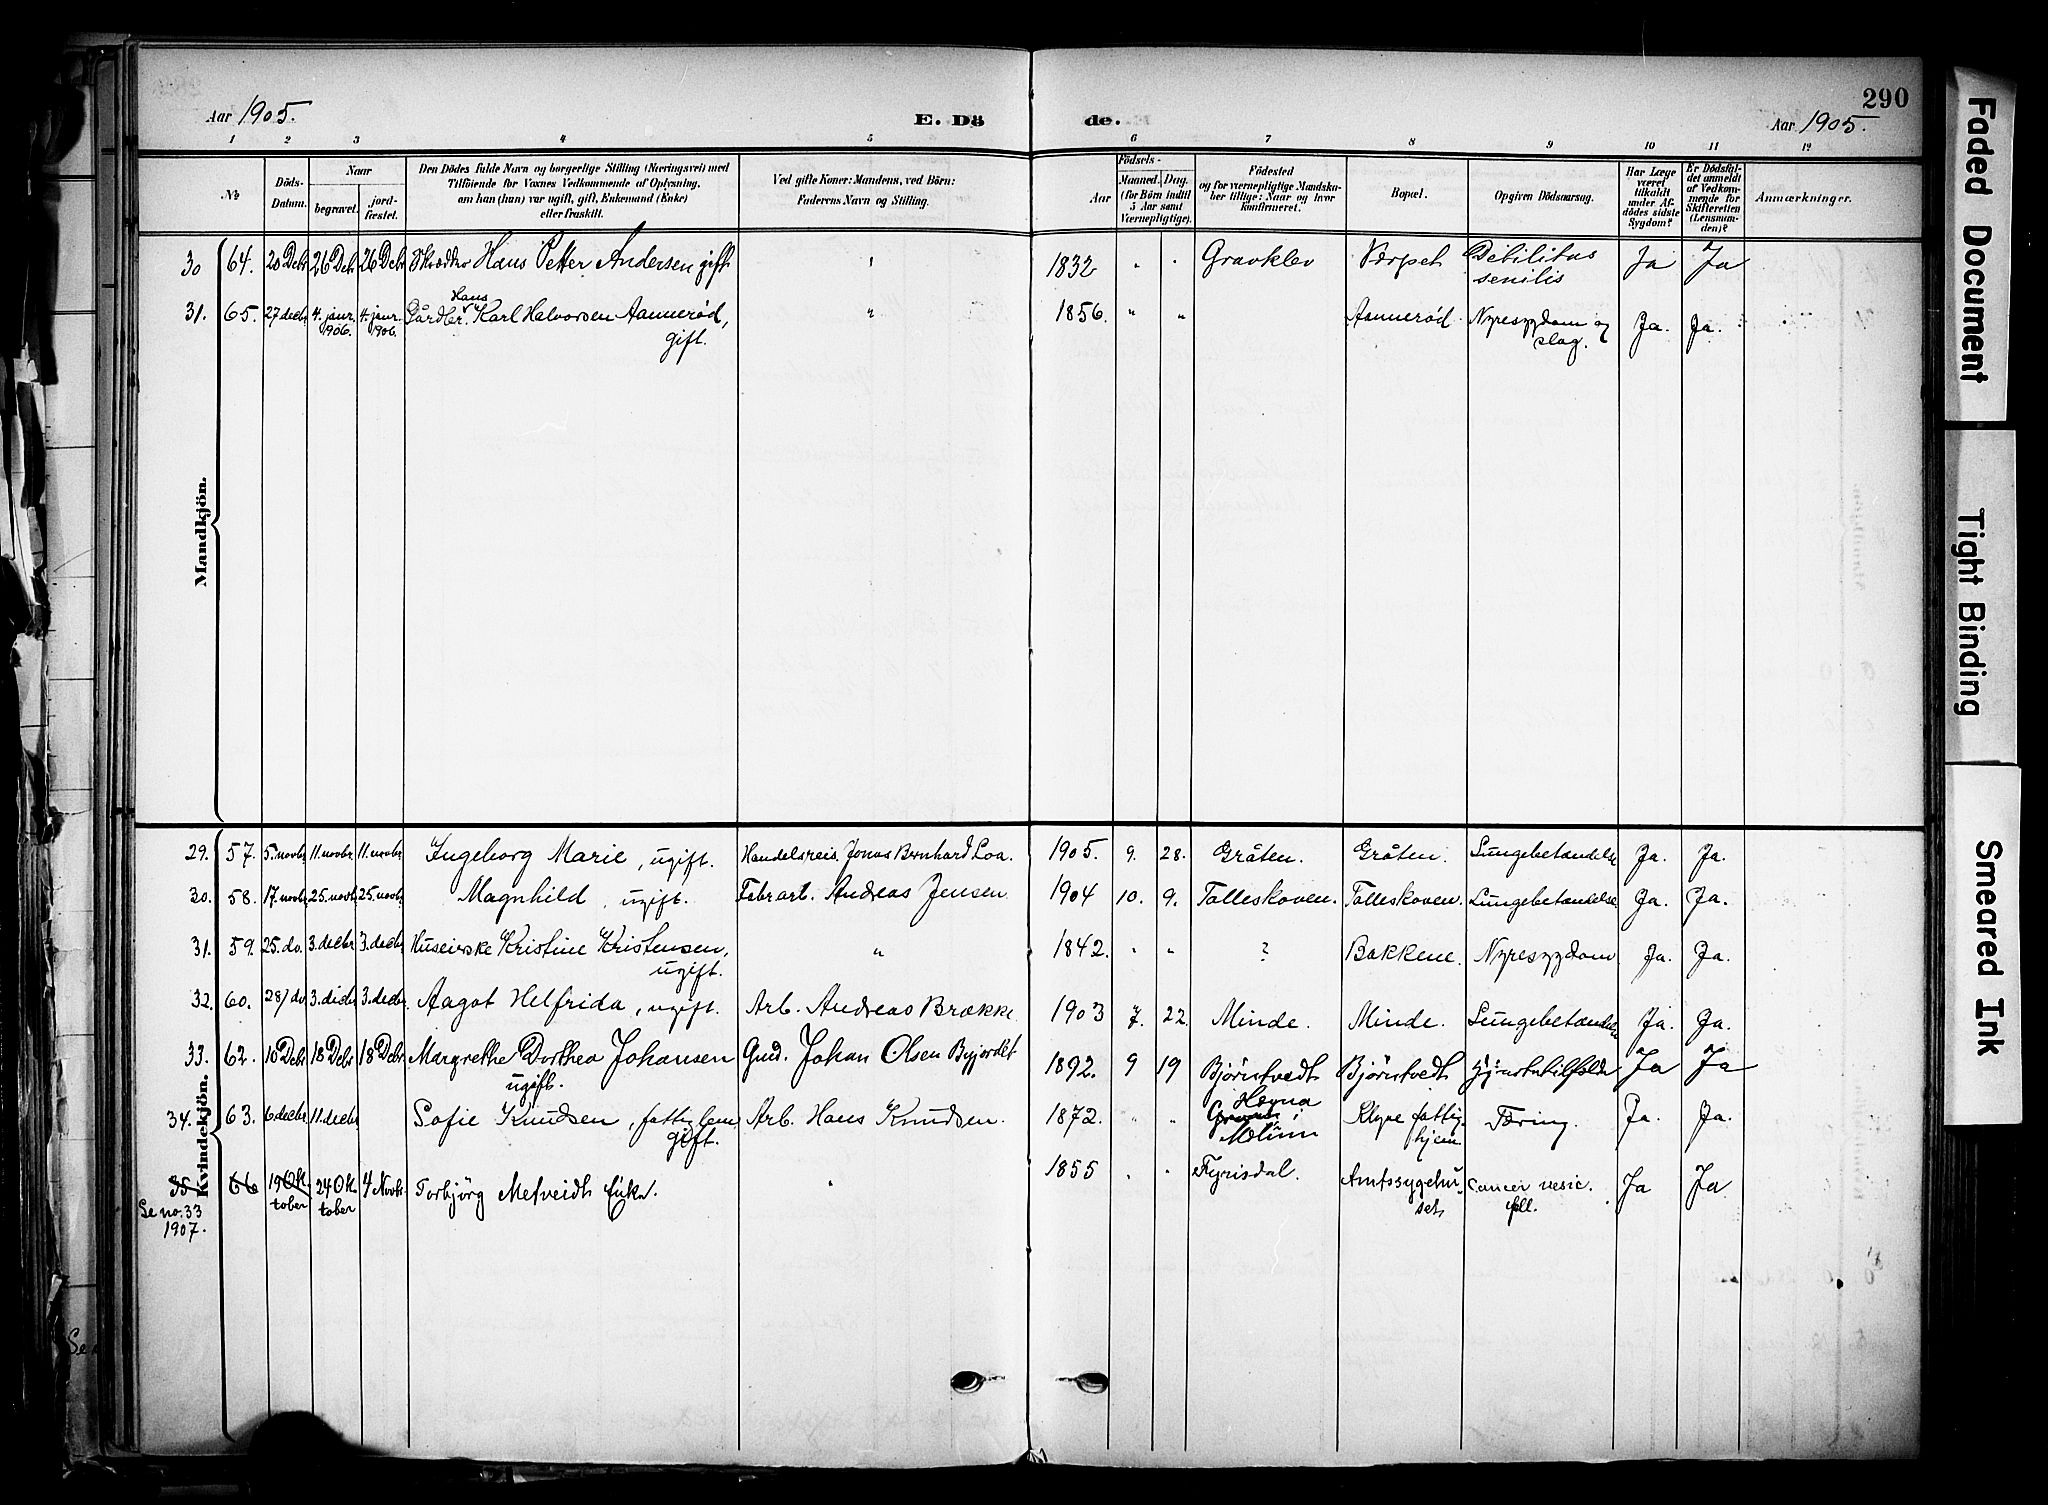 290
Aar 1905. E. Dö de. Aar 1905.
1 2 3 4 5 6 7 8 9 10 11 12
No.
Döds-Datum.
Naar
begravet.
jordfæstet.
Den Dödes fulde Navn og borgerlige Stilling (Næringsvei) med
Tilföiende for Voxnes Vedkommende af Oplysning,
om han (hun) var ugift, gift, Enkemand (Enke)
eller fraskilt.
Ved gifte Koner: Mandens, ved Börn:
Faderens Navn og Stilling.
Födsels-
Aar
Maaned. Dag.
(for Börn indtil
5 Aar samt
Værnepligtige).
Födested
og for værnepligtige Mandska-
ber tillige: Naar og hvor
konfirmeret.
Bopæl.
Opgiven Dödsaarsag.
Har Læge
været
tilkaldt
under Af-
dödes sidste
Sygdom?
Er Dödsfal-
det anmeldt
af Vedkom-
mende for
Skifteretten
(Lensman-
den)?
Anmærkninger.
Mandkjön.
30 64. 20 Debr 26 Debr 26 Debr Skrædder Hans Petter Andersen gift " 1832 " " Gravklev Værpet Debilitas Ja Ja
senilis
Hans
31. 65. 27 decbr 4. janr. 4. janr. Gårdbr. Karl Halvorsen Aannerød, " 1856. " " Aannerød Nyresygdom og Ja. Ja.
1906. 1906. gift. slag.
Kvindekjön.
29. 57. 5. novbr. 11. novbr. 11. novbr. Ingeborg Marie, ugift. Handelsreis. Jonas Bernhard Loa. 1905. 9. 28. Gråten. Gråten. Lungebetændelse Ja. Ja.
30. 58. 17. novbr. 25. novbr. 25. novbr. Magnhild, ugift. Fabr.arb. Andreas Jensen 1904 10. 9. Tolleskoven. Tolleskoven. Lungebetændelse Ja. Ja.
31. 59. 25. do. 3. decbr. 3. decbr. Huseierske Kristine Kristensen, " 1842. " " ? Bakkene. Nyresygdom Ja. Ja.
ugift.
32. 60. 28/ do 3. decbr. 3. decbr. Aagot Helfrida, ugift. Arb. Andreas Brække. 1903 7. 22. Minde. Minde. Lungebetændelse Ja. Ja.
33. 62. 10 Debr 18 Debr 18 Debr Margrethe Dorthea Johansen Gmd. Johan Olsen Byjordet 1892. 9 19 Bjørntvedt Bjørntvedt Hjertetilfælde Ja Ja
ugift.
34. 63. 6 decbr. 11. decbr. Sofie Knudsen, fattiglem Arb. Hans Knudsen. 1872. " " Høgna i Klype fattig- Tæring. Ja. Ja.
gift. Mælum hjem
35. 66 19 Ok- 24 Ok- 4 Novbr Torbjörg Metveidt Enke. " 1855 " " Fyrisdal. Amtssygehu- Cancer vesic. Ja Ja
tober tober set fell.
Se no. 33
1907.
Se
Faded Document
Tight Binding
Smeared Ink